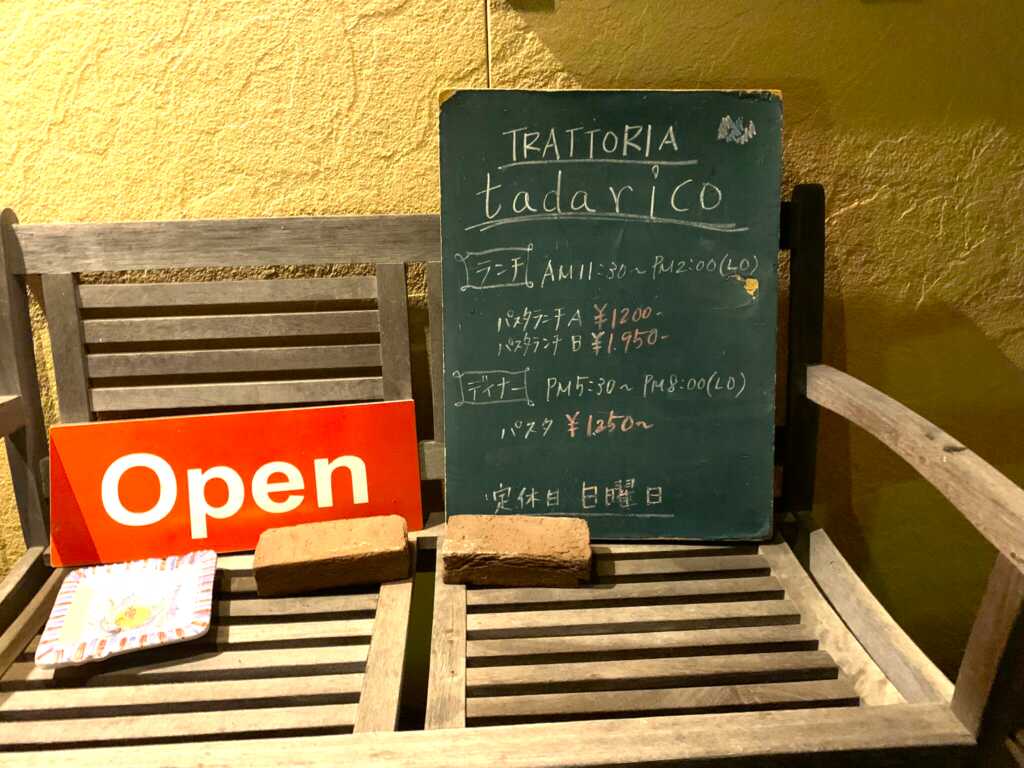 TRATTORIA
tadarico
ランチ AM11:30〜PM2:00(LO)
パスタランチA ¥1200-
パスタランチB ¥1.950-
ディナー PM5:30〜PM8:00(LO)
パスタ ¥1.250〜
定休日 日曜日
Open